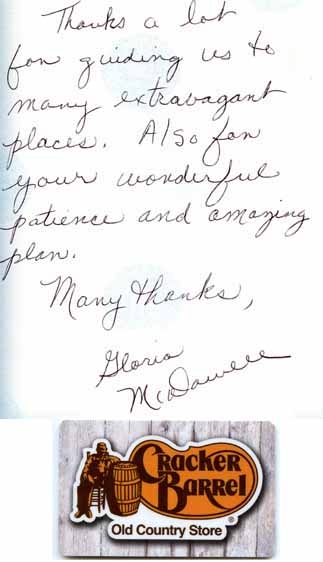 Thanks a lot
for guiding us to
many extravagant
places. Also for
your wonderful
patience and amazing
plan.
Many thanks,
Gloria
McDowell
Cracker
Barrel
®
Old Country Store